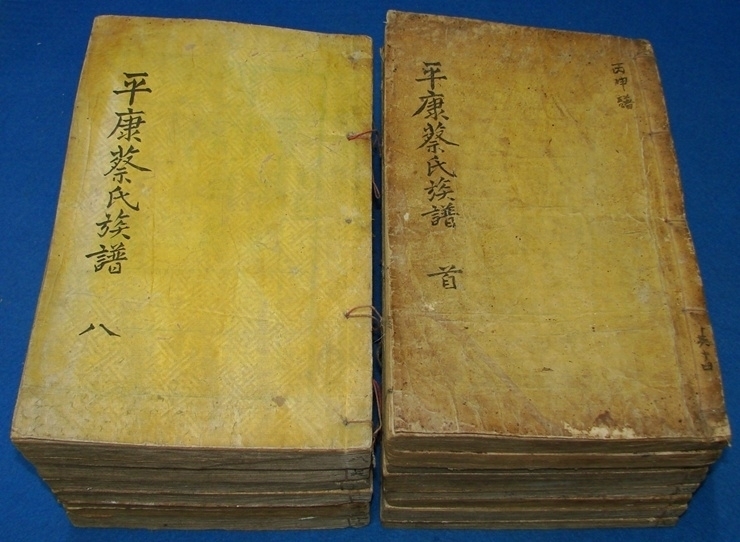 平康蔡氏族譜
八
平康蔡氏族譜
首
丙申譜